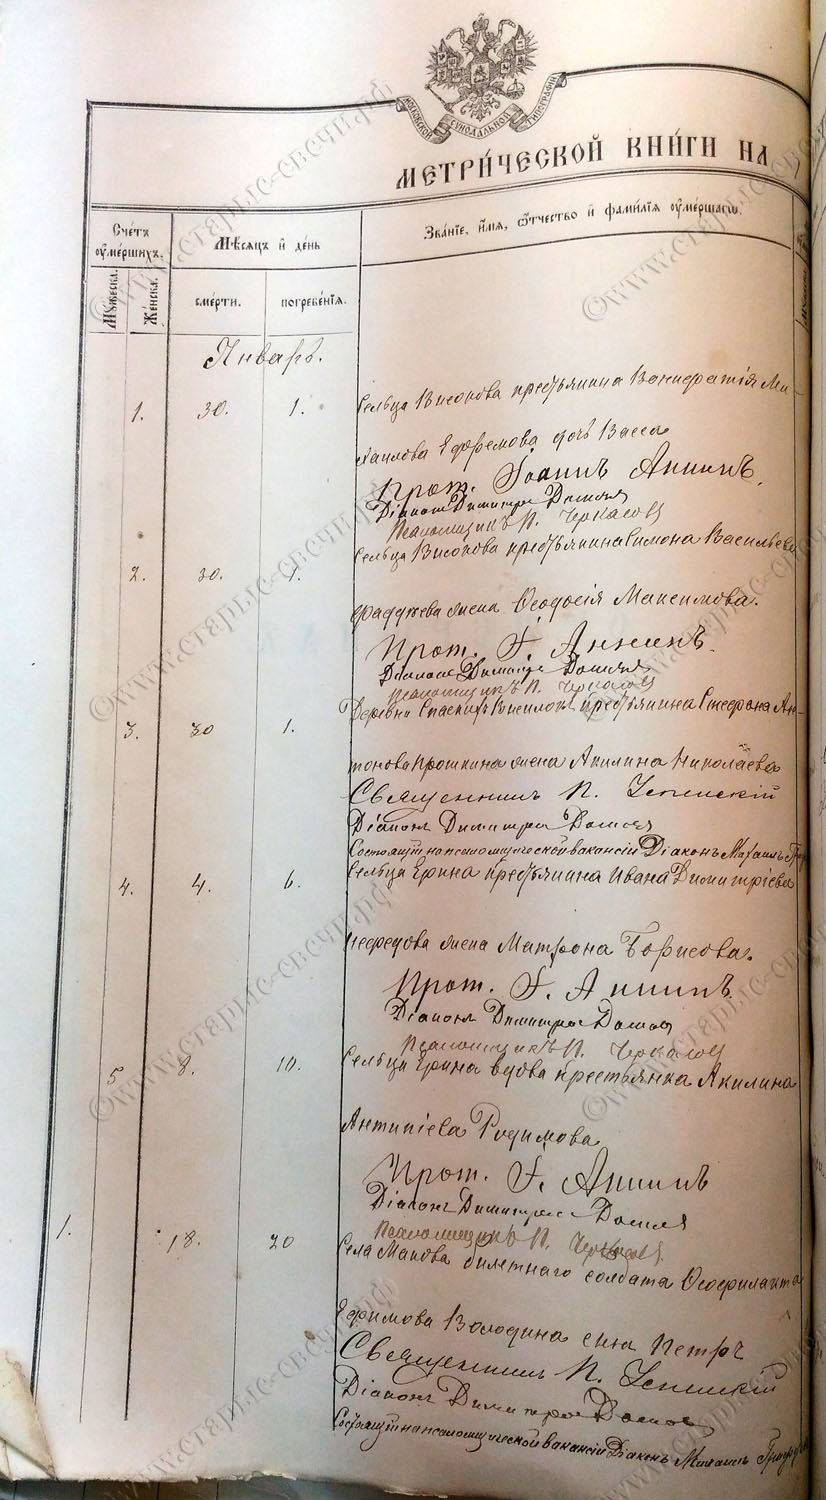 МОСКОВСКОЙ СУНОДАЛЬНОЙ ТИПОГРАФИИ
МЕТРИ́ЧЕСКОЙ КНИ́ГИ НА
Счетъ ѹмершихъ.
Мѣсяцъ и день
Званіе, имя, ѻтчество и фамилія ѹмершагѡ.
Мужеска.
Женска.
смерти.
погребенія.
Январь.
1. 30. 1. Сельца Високова крестьянина Ми-
хаилова Ефремова дочь Васса
Прот. Іоаннъ Аннинъ.
Діаконъ Димитрій
Псаломщикъ П. Черкасовъ
2. 30. 1. Сельца Високова крестьянина Симона Васильева
жена Ѳеодосія Максимова.
Прот. І. Аннинъ.
Діаконъ Димитрій
Псаломщикъ П. Черкасовъ
3. 30 1. Деревни Спаскихъ Виселокъ крестьянина Стефана Ан-
тонова Прошкина жена Акилина Николаева
Священникъ П. Успенскій
Діаконъ Димитрій
Состоящій на псаломщической вакансіи Діаконъ Михаилъ
4. 4. 6. Сельца Ерина крестьянина Ивана Димитріева
Нефедова жена Матрона Борисова.
Прот. І. Аннинъ.
Діаконъ Димитрій
Псаломщикъ П. Черкасовъ
5 8. 10. Сельца Ерина вдова крестьянка Акилина
Антипіева Родимова
Прот. І. Аннинъ
Діаконъ Димитрій
Псаломщикъ П. Черкасовъ
1. 18. 20 Села Макова билетнаго солдата Ѳеофилакта
Ефимова Володина сынъ Петръ
Священникъ П. Успенскій
Діаконъ Димитрій
Состоящій на псаломщической вакансіи Діаконъ Михаилъ
©www.старые-свечи.рф